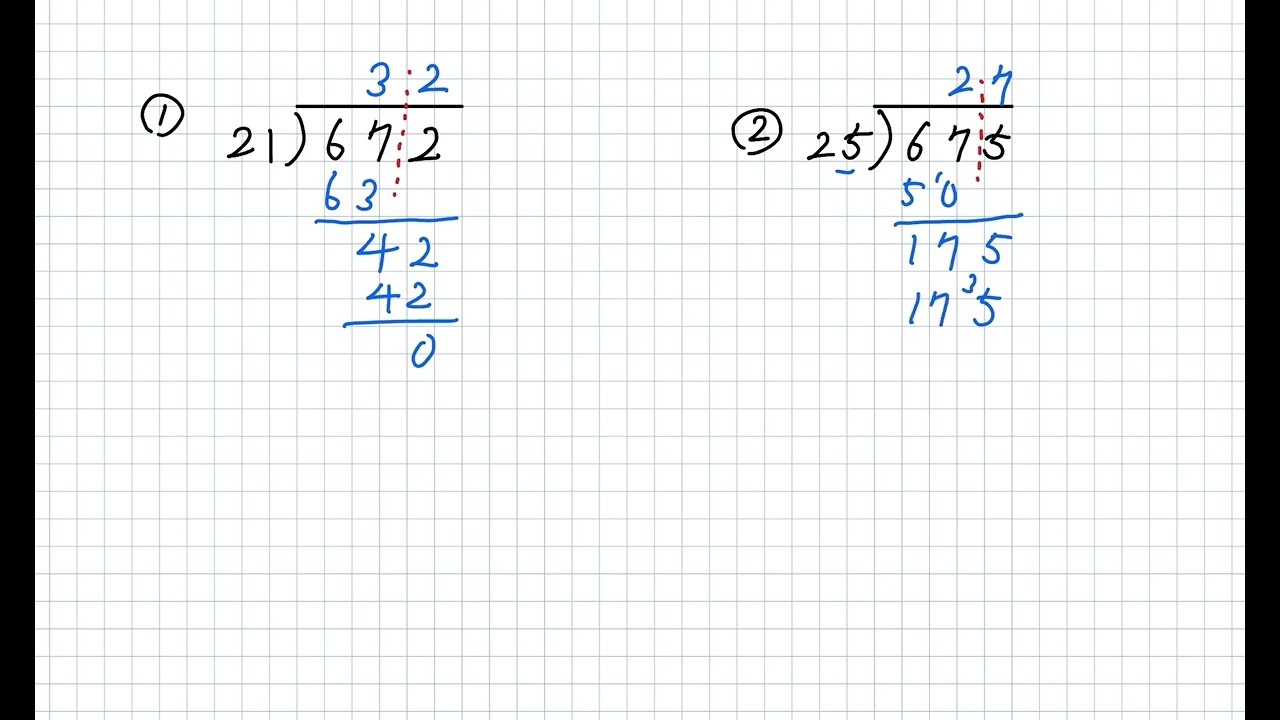 ① 3 2
21)672
63
42
42
0
② 2 7
25)675
50
175
17³5